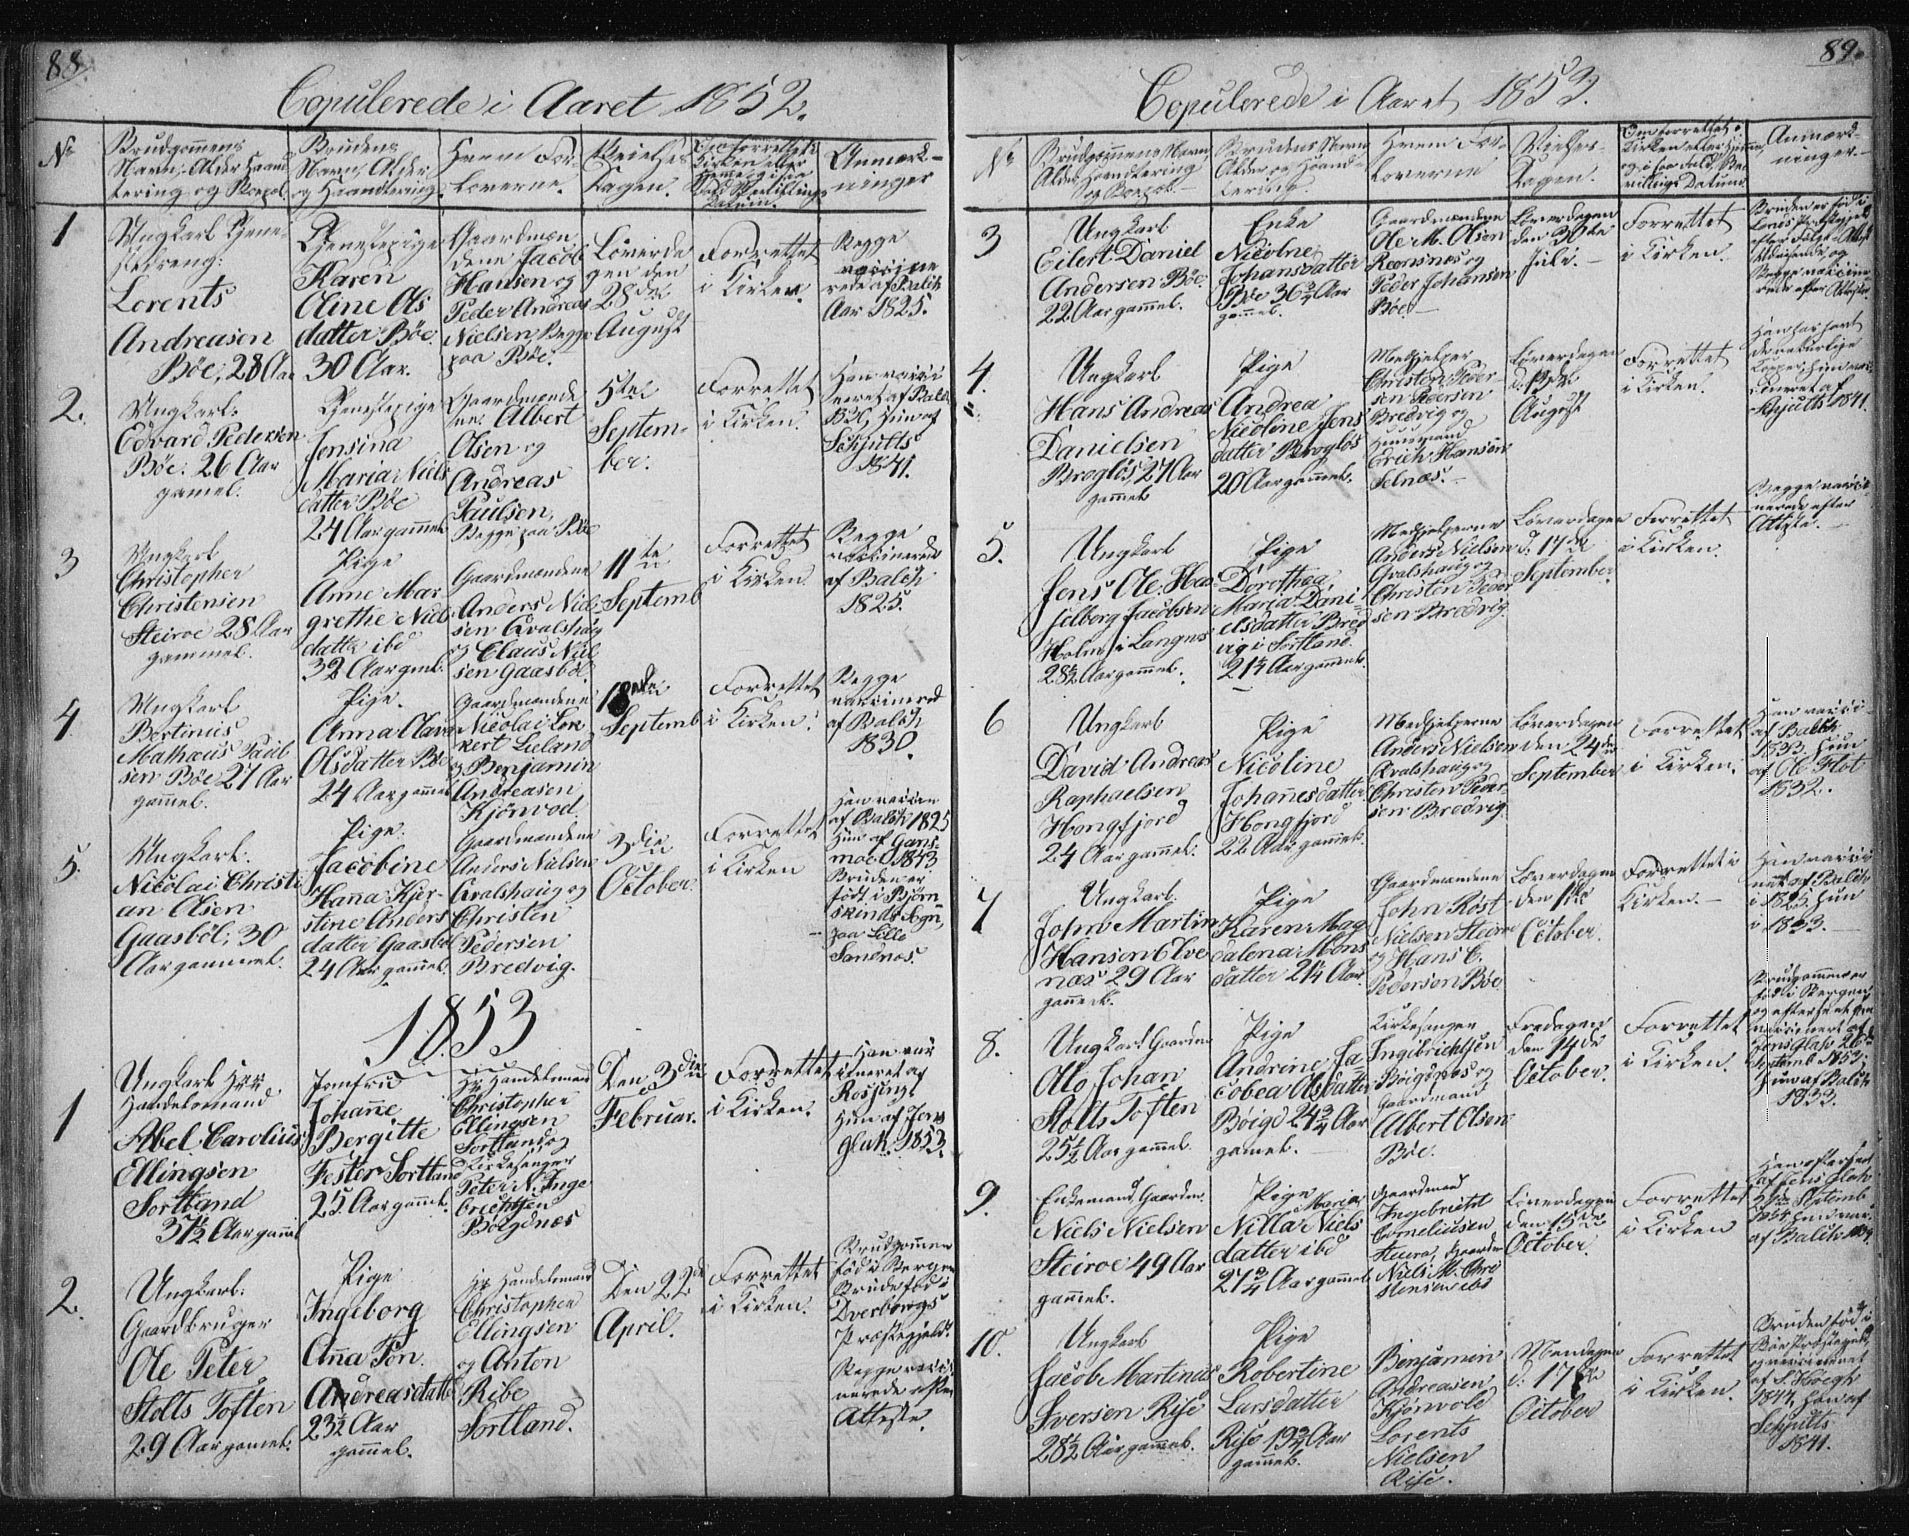 88.
Copulerede i Aaret 1852.
No
Brudgommens
Navn, Alder, Haand
tering og Bopæl.
Brudens
Navn, Alder,
og Haandtering.
Hvem For-
loverne.
Vielses
Dagen.
Om forrettet i
Kirken eller
Hjemme, og i saa
Fald Bevillings
Datum.
Anmærk-
ninger
1
Ungkarl Tjene-
stedreng:
Lorents
Andreasen
Böe, 28 Aar
Tjenestepige
Karen
Oline Ols
datter Böe
30 Aar.
Gaardmæn
dene Jacob
Hansen og
Peder Andreas
Nielsen, Begge
paa Böe.
Löverda
gen den
28de
August
Forrettet
i Kirken.
Begge
vaccine
rede af Balch
Aar 1825.
2.
Ungkarl.
Edvard Pedersen
Böe. 26 Aar
gamel.
Tjenestepige
Jensina
Maria Niels
datter Böe
24 Aar gammel
Gaardmænde
ne Albert
Olsen og
Andreas
Paulsen,
Begge paa Böe
5te
Septem-
ber.
Forrettet
i Kirken.
Han vacci
neret af Balch
Hun af
Schjutts
1841.
3
Ungkarl
Christopher
Christensen
Steiroe 28 Aar
gammel.
Pige
Anne Mar
grethe Niels
datter ibd
32 Aar gml.
Gaardmændene
Anders Niel
sen Qvalshaug
og Claus Niel
sen Gaasböl.
11te
Septemb
Forrettet
i Kirken
Begge
vaccinerede
af Balch
1825.
4
Ungkarl
Bertinus
Mathæus Paul
sen Böe 27 Aar
gammel.
Pige.
Anna Olava
Olsdatter Böe
24 Aar gammel
Gaardmændene
Nicolai Lor
Lieland
og Benjamin
Andreasen
Kjörvod.
18de
Septemb
Forrettet
i Kirken.
Begge
vaccinered
af Balch
1830.
5.
Ungkarl.
Nicolai Christi
an Olsen
Gaasböl, 30
Aar gammel.
Pige.
Jacobine
Hanna Kjer-
stine Anders
datter Gaasböl
24 Aar gammel.
Gaardmændene
Anders Nielsen
Qvalshaug og
Christen
Pedersen
Bredvig.
3die
October.
Forrettet
i Kirken
Han vaccin
af Balch 1825
Hun af Gans-
moe 1843
Bruden er
född i Björn
skinds Sogn,
paa Lille
Sandnæs.
1853
1
Ungkarl Hrr
Handelsmand
Abel Carolius
Ellingsen
Sortland
37½ Aar gammel
Jomfru
Johanne
Bergitte
Fester Sortland
25 Aar gammel.
Hr Handelsmand
Christopher
Ellingsen
Sortland og
Kirkesanger
Peter N. Inge
brichtsen
Böigdnæs
Den 3die
Februar.
Forrettet
i Kirken.
Han vac
cineret af
Rosjing
Hun af Jens
Glak 1853.
2.
Ungkarl.
Gaardbruger
Ole Peter
Stolts Toften
29 Aar gamel.
Pige
Ingeborg
Anna Ton
Andreasdatter
23½ Aar
gammel.
Hr Handelsmand
Christopher
Ellingsen
og Anton
Ribe
Sortland.
Den 22de
April.
Forrettet
i Kirken.
Brudgommen
föd i Bergen
Brude föd i
Dverbergs
Præstegjeld.
Begge vacci
nerede efter
Atteste.
89.
Copulerede i Aaret 1853.
No
Brudgommens Navn
Alder, Haandtering
og Bopæl.
Brudens Navn
Alder og Haand-
tering.
Hvem For-
loverne
Vielses-
Dagen.
Om forrettet i
Kirken eller Hjemme,
og i saa Fald Be-
villings Datum.
Anmærk-
ninger.
3
Ungkarl
Eilert Daniel
Andersen Böe
22 Aar gammel.
Enke
Nicoline
Johansdatter
Böe 36¾ Aar
gammel.
Gaardmændene
Ole M. Olsen
Reensnæs og
Peder Johansen
Böe.
Löverdagen
den 30te
Julie.
Forrettet
i Kirken.
Bruden er föd i
Præstegjeld
efter
og
Begge vaccine
rede efter Attester.
4.
Ungkarl
Hans Andreas
Danielsen
Brogløs, 27 Aar
gammel.
Pige
Andrea
Nicoline Jens
datter Brogløs
20 Aar gammel.
Medhjelper
Christen Peder
sen
Bredvig og
Huusmand
Erich Hansen
Selnæs.
Löverdagen
d. 13de
August
Forrettet
i Kirken.
Han har havt
de naturlige
Kopper, Hun vac-
cineret af
Schjutts 1841.
5.
Ungkarl
Jens Ole Has
selberg Jacobsen
Holm i Langnes
28½ Aar gammel.
Pige
Dorothea
Maria Dani-
elsdatter Bred
vig i Sortland.
21¼ Aar gammel.
Medhjelperne
Anders Nielsen
Qvalshaug og
Christen Peder
sen Bredvig.
Löverdagen
d. 17de
September.
Forrettet
i Kirken.
Begge vacci-
nerede efter
Atteste.
6
Ungkarl
David Andreas
Raphaelsen
Hongfjord
24 Aar gammel.
Pige
Nicoline
Johannesdatter
Hongfjord
22 Aar gammel.
Medhjelperne
Anders Nielsen
Qvalshaug og
Christen Peder
sen Bredvig.
Löverdagen
den 24de
September
Forrettet
i Kirken.
Han vacci-
af Balch
1833. Hun
af Ole Flot
1832.
7
Ungkarl.
John Martin
Hansen Elve
næs 29 Aar
gammel.
Pige
Karen Mag
dalena Mons
datter 21¼ Aar
Gaardmændene
John Röst
Nielsen Steiroe
og Hans C.
Pedersen Böe
Löverdagen
den 1ste
October.
Forrettet i
Kirken.
Han vacci
net af Balch
i 1825. Hun
i 1833.
8.
Ungkarl Gaardm
Otto Johan
Stolts Toften
25½ Aar gammel.
Pige
Andrine Ja
cobea Olsdatter
Böigd 24¾ Aar
gamel.
Kirkesanger
Ingebrichtsen
Böigdnæs og
Gaardmand
Albert Olsen
Böe.
Fredagen
den 14de
October.
Forrettet
i Kirken.
Brudgommen er
föd i Bergen
og efterseet gien
vaccineret af
Jens Glak 26de
Septemb 1853.
Hun af Balch
1833.
9.
Enkemand, Gaardm.
Niels Nielsen
Steiroe 49 Aar
gammel.
Pige
Nilla Maria Niels
datter ibd
27¾ Aar gammel
Gaardmand
Ingebricht
Corneliusen
Steiro, Gaardm
Niels M. Chri
stensen ibd
Löverdagen
den 15de
October.
Forrettet
i Kirken
Han efterseet
af Jens Glak
Septemb
Hun vac.
af Balch
10.
Ungkarl
Jacob Martinus
Iversen Rise
28½ Aar gammel.
Pige
Robertine
Larsdatter
Rise 19¾ Aar
gammel.
Benjamin
Andreasen
Kjörvold
Lorents
Nielsen
Rise.
Mandagen
d. 17de
October
Forrettet
i Kirken.
Bruden föd i
Böe Præstegield
og vaccineret
af S. Höegh
1847, Han af
Schjutts
1841.